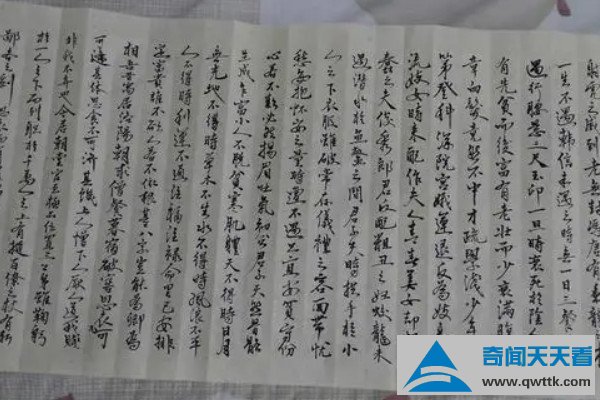 射虎之威到老無封馮唐有
一生不遇韓信未遇之時無一日三餐
遇行腰懸三尺玉印一旦時衰死於陰人
有先貧而後富有老壯而少衰滿腹
章白髮竟然不中才疏學淺少年
第登科深院宮娥運退反為妓
流妓女時來配作夫人青春美女卻招
蠢之夫俊秀郎君反配粗丑之婦蛟龍未
遇潛水於魚蝦之間君子失時拱手於小
人之下衣服雖破常存儀禮之容面帶憂
愁每抱懷安之量時遭不遇只宜安貧守份
心若不欺必然揚眉吐氣初貧君子天然骨骼
生成乍富小人不脫貧寒肌體天不得時日月
無光地不得時草木不生水不得時風浪不平
人不得時利運不通注福注祿命里已安排
定富貴誰不欲人若不依根基八字豈能為卿為
相吾昔寓居洛陽朝求僧餐暮宿破窯思衣不
可遮其體思食不可濟其饑上人憎下人厭人道我賤
非我不棄也今居朝堂官至極品位置三公身雖鞠躬
於一人之下而列職於千萬人之上有撻百僚之杖有斬
鄙吝之劍思衣
奇闻天天看
www.qwttk.com